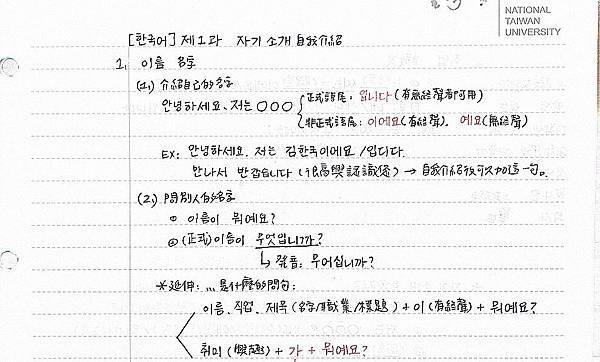 NATIONAL
TAIWAN
UNIVERSITY
[한국어] 제1과 자기 소개 自我介紹
1. 이름 名字
(1.) 介紹自己的名字
안녕하세요, 저는 ○○○ 正式語尾: 입니다 (有無終聲皆可用)
非正式語尾: 이에요 (有終聲). 예요 (無終聲)
EX: 안녕하세요. 저는 김한국이에요 / 입니다.
만나서 반갑습니다 (很高興認識您) → 自我介紹後可以加這一句。
(2.) 問別人的名字
① 이름이 뭐예요?
② (正式) 이름이 무엇입니까?
↳ 發音: 무어심니까?
*延伸: ...是什麼的問句:
이름. 직업. 제목 (名字/職業/標題) + 이 (有終聲) + 뭐예요?
취미 (興趣) + 가 + 뭐예요?